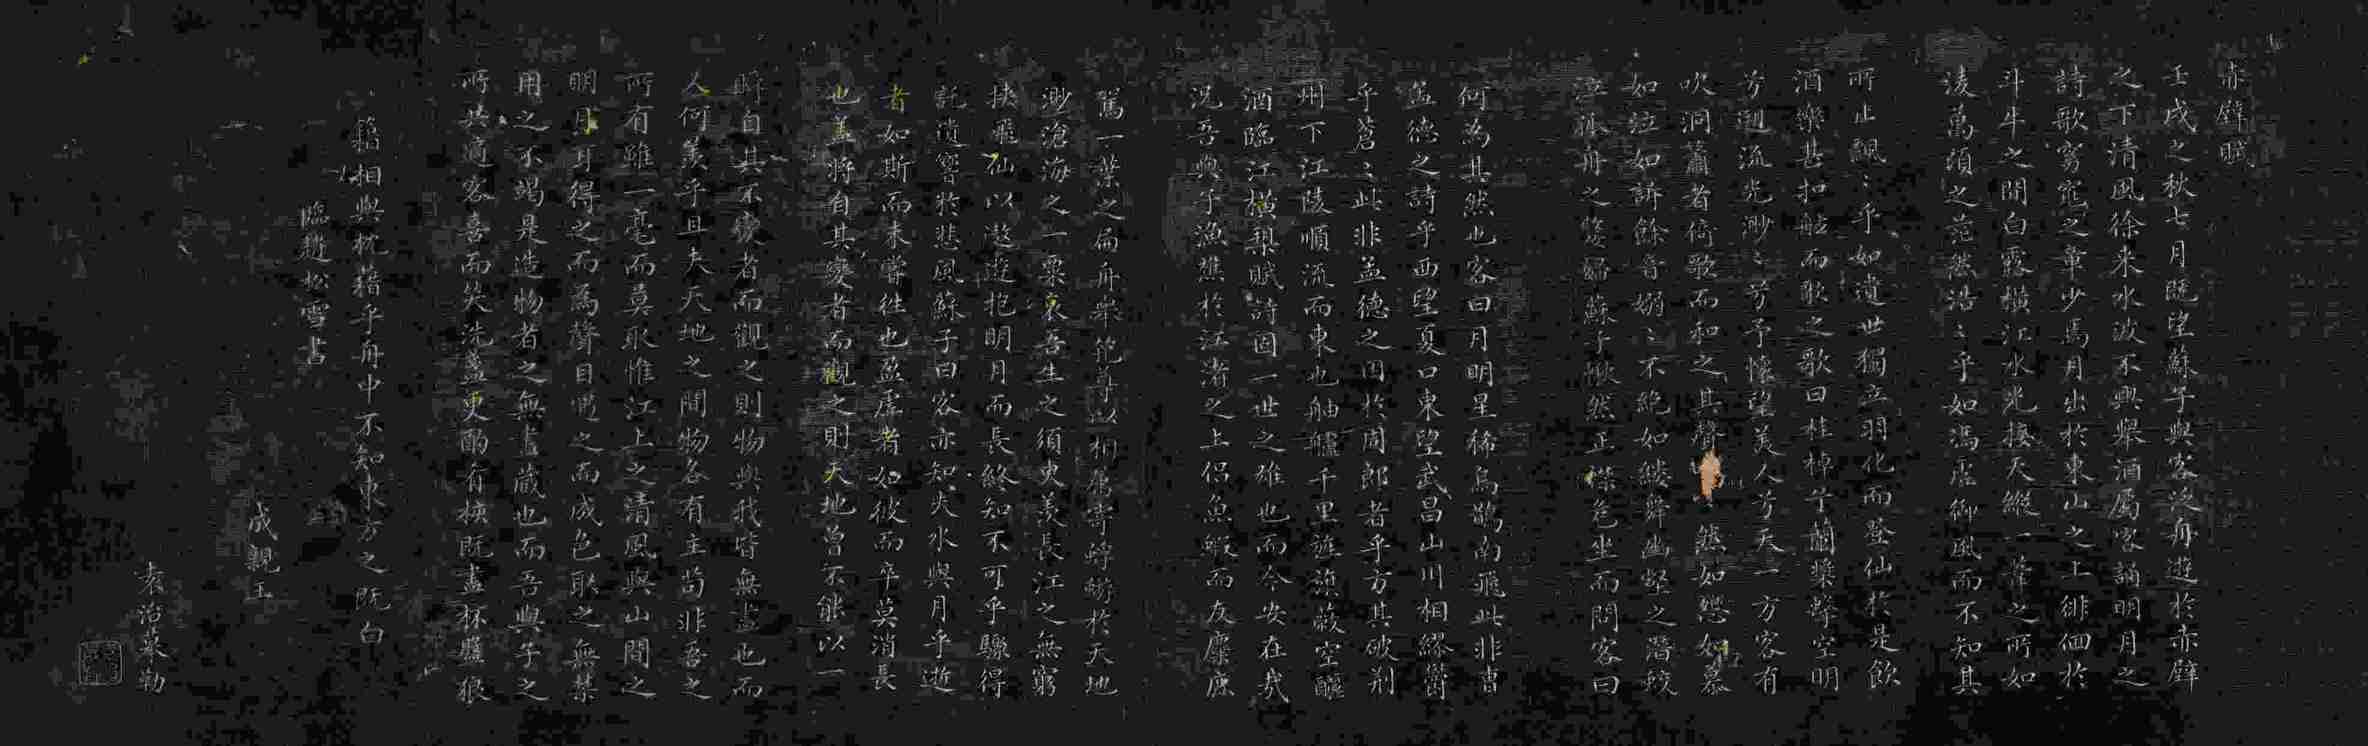 赤壁賦
壬戌之秋七月既望蘇子與客泛舟遊於赤壁
之下清風徐来水波不興舉酒屬客誦明月之
詩歌窈窕之章少焉月出於東山之上徘徊於
斗牛之間白露橫江水光接天縱一葦之所如
淩萬頃之茫然浩〻乎如馮虛御風而不知其
所止飄〻乎如遺世獨立羽化而登仙於是飲
酒樂甚扣舷而歌之歌曰桂棹兮蘭槳擊空明
兮遡流光渺〻兮予懷望美人兮天一方客有
吹洞簫者倚歌而和之其聲然如怨如慕
如泣如訴餘音嫋〻不絶如縷舞幽壑之潛蛟
泣孤舟之嫠婦蘇子愀然正襟危坐而問客曰
何為其然也客曰月明星稀烏鵲南飛此非曹
孟德之詩乎西望夏口東望武昌山川相繆鬱
乎蒼〻此非孟德之困於周郎者乎方其破荆
州下江陵順流而東也舳艫千里旌旗蔽空釃
酒臨江橫槊賦詩固一世之雄也而今安在哉
況吾與子漁樵於江渚之上侶魚蝦而友麋鹿
駕一葉之扁舟舉匏尊以相屬寄蜉蝣於天地
渺滄海之一粟哀吾生之須臾羨長江之無窮
挾飛仙以遨遊抱明月而長終知不可乎驟得
託遺響於悲風蘇子曰客亦知夫水與月乎逝
者如斯而未嘗往也盈虛者如彼而卒莫消長
也盖將自其變者而觀之則天地曾不能以一
瞬自其不變者而觀之則物與我皆無盡也而
又何羨乎且夫天地之間物各有主苟非吾之
所有雖一毫而莫取惟江上之清風與山間之
明月耳得之而為聲目遇之而成色取之無禁
用之不竭是造物者之無盡藏也而吾與子之
所共適客喜而笑洗盞更酌肴核既盡杯盤狼
籍相與枕藉乎舟中不知東方之既白
臨趙松雪書
成親王
袁治摹勒